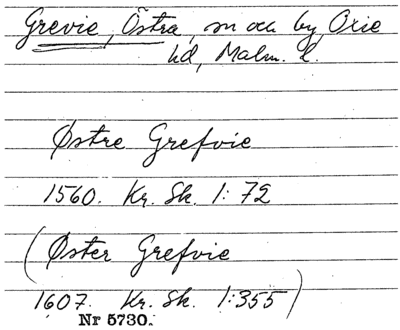 Grevie, Östra, sn och by, Oxie
hd, Malm. l.
Østre Grefvie
1560. Kr. Sk. 1:72
(Øster Grefvie
1607. Kr. Sk. 1:355)
Nr 5730.